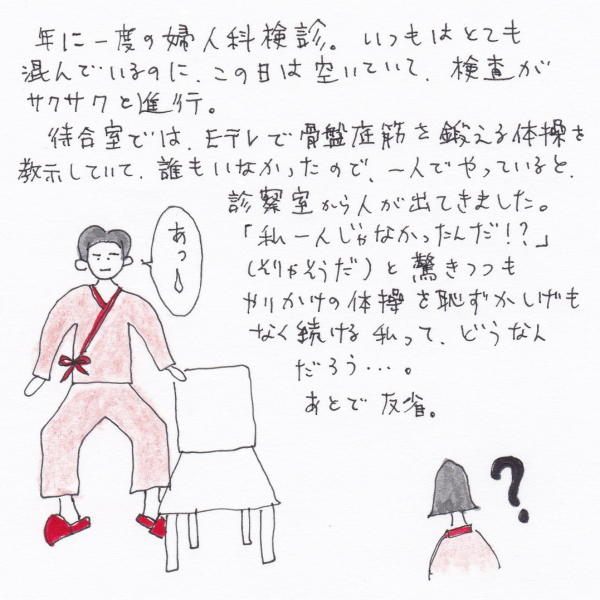 年に一度の婦人科検診。いつもはとても
混んでいるのに、この日は空いていて、検査が
サクサクと進行。
待合室では、Eテレで骨盤底筋を鍛える体操を
教示していて、誰もいなかったので、一人でやっていると、
診察室から人が出てきました。
「私一人じゃなかったんだ!?」
(そりゃそうだ)と驚きつつも
やりかけの体操を恥ずかしげも
なく続ける私って、どうなん
だろう…。
あとで反省。
あっ
?